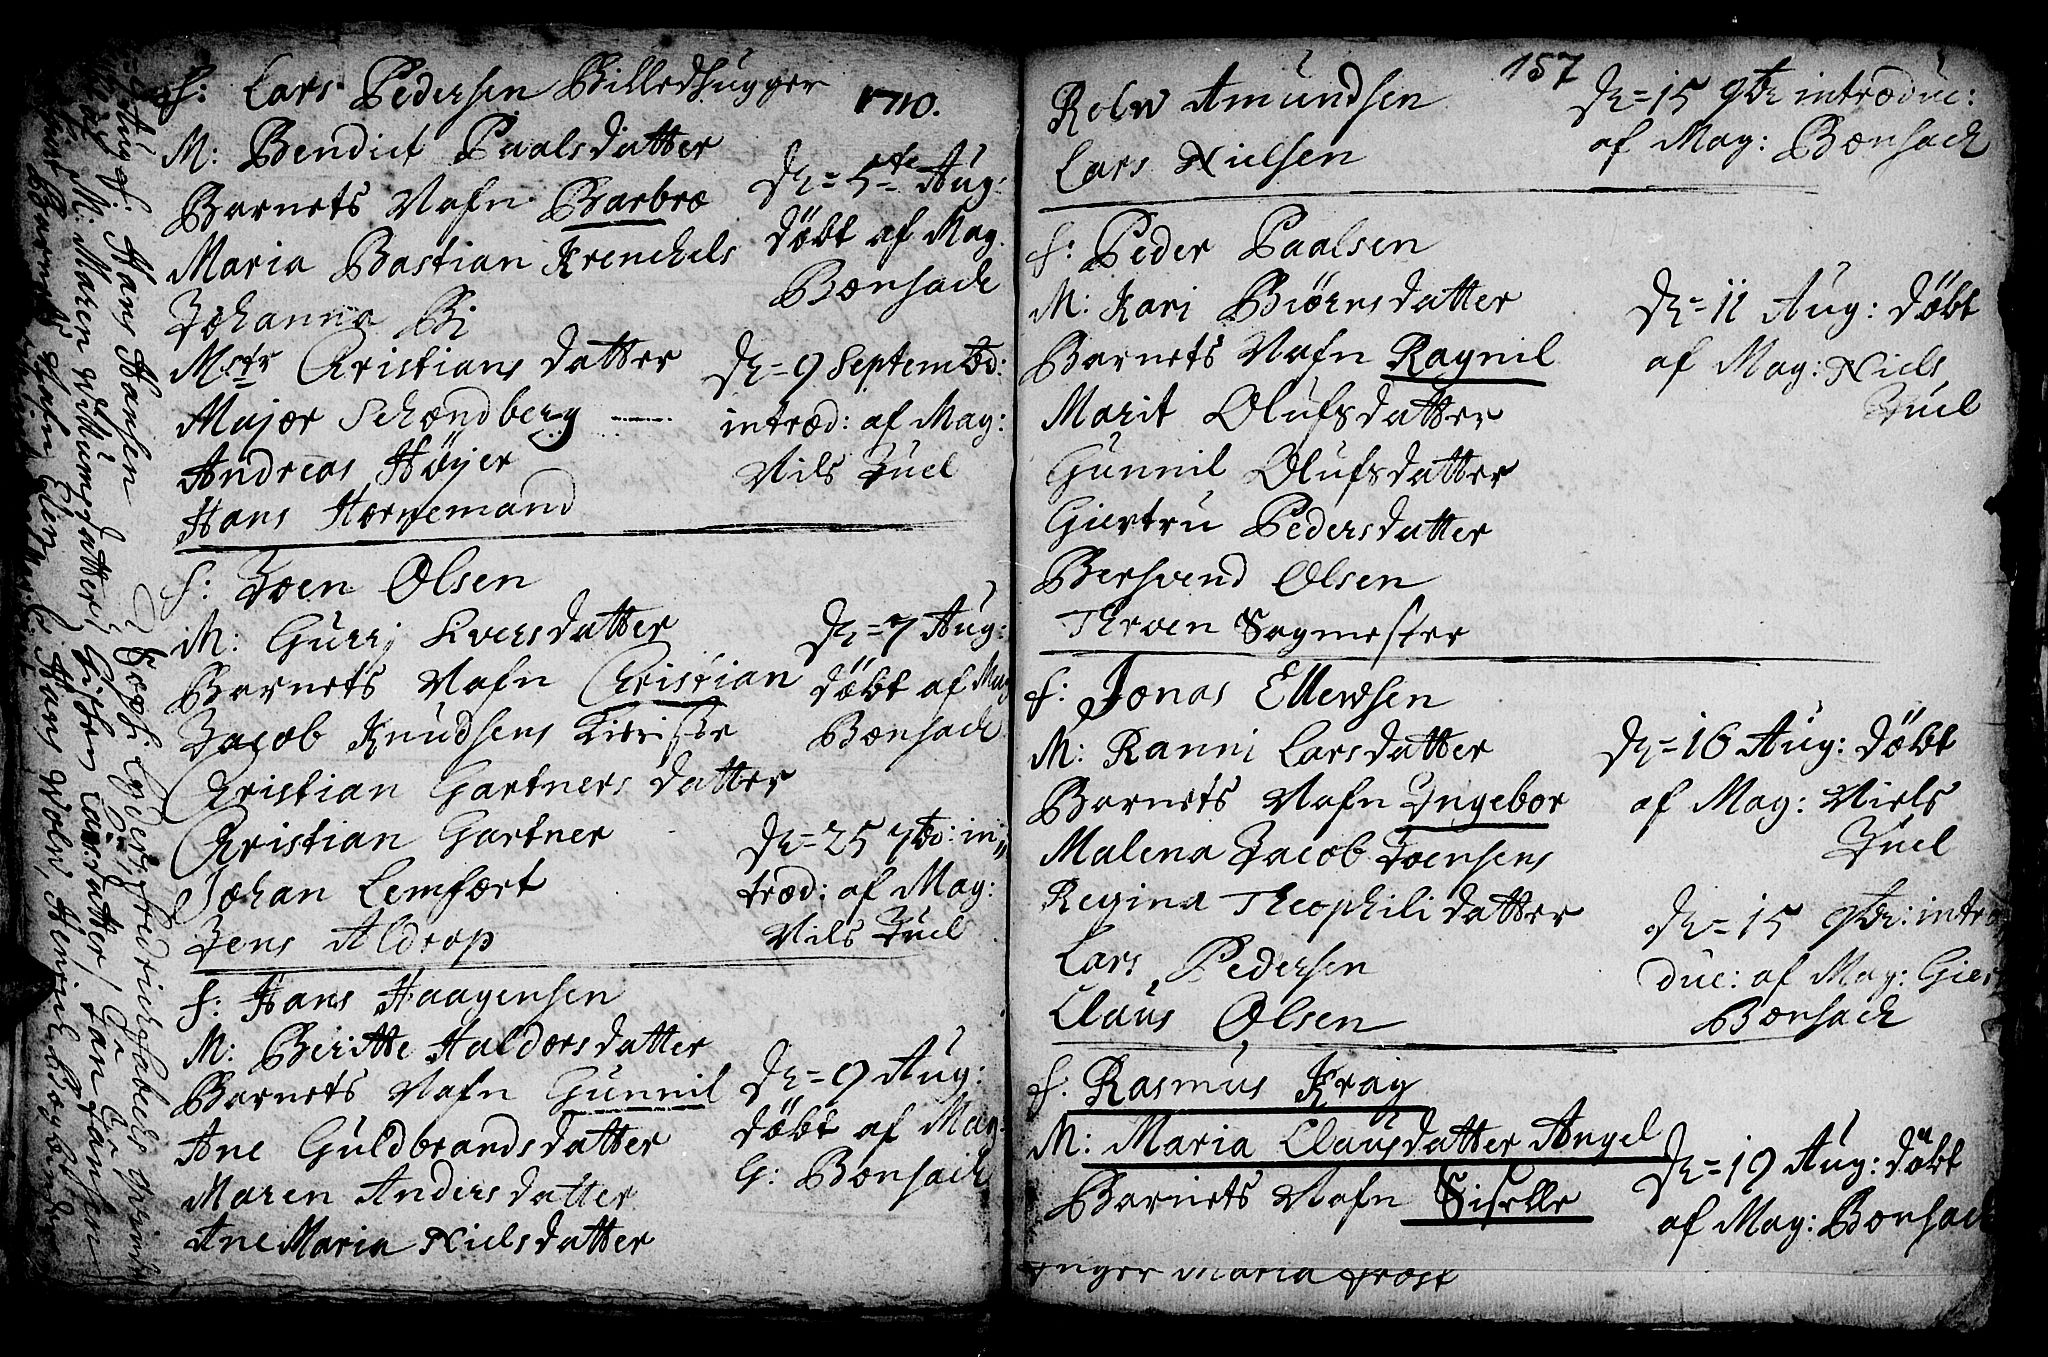 f: Lars Pedersen Billedhugger
1710.
M: Bendict Paalsdatter
Barnets Nafn Barbræ
Maria Bastian Krenckels
Johanna Bj
Mstr Christians datter
Majær Schændberg
Andreas Høyer
Hans Hornemand
D= 5te Aug:
döbt af Mag.
Bænsack
D= 9 Septembr:
intræd: af Mag:
Nils Juel
f: Joen Olsen
M: Gurrj Iversdatter
Barnets Nafn Christian
Jacob Knudsens
Christian Gartners datter
Christian Gartner
Johan Lemfært
Jens Aldrop
D= 7 Aug:
döbt af Mag
Bænsack
D= 25 7br: in,,
træd: af Mag:
Nils Juel
f: Hans Haagensen
M: Beritte Haldorsdatter
Barnets Nafn Gunnil
Ane Guldbrandsdatter
Maren Andersdatter
Ane Maria Nielsdatter
D= 9 Aug:
döbt af Mag:
G: Bonsack
Aug f: Hans Hansen
M: Maren
Barnets Nafn Elen
Larsdatter, Jan Jansen
Hans Woln, Henrich
157
Rolw Amundsen
Lars Nielsen
D= 15 9br introduc:
af Mag: Bænsack
f: Peder Paalsen
M: Kari Biörnsdatter
Barnets Nafn Ragnil
Marit Olufsdatter
Gunnil Olufsdatter
Giertru Pedersdatter
Bersvend Olsen
Throen Sagmester
D= 11 Aug: döbt
af Mag: Niels
Juel
f: Jonas Ellewsen
M: Ranni Larsdatter
Barnets Nafn Ingebor
Malena Jacob Joensens
Regina Theophili datter
Lars Pedersen
Claus Olsen
D= 16 Aug: döbt
af Mag: Niels
Juel
D= 15 9br: intro
duc: af Mag: Gier
Bonsack
f. Rasmus Krag
M: Maria Clausdatter Angel
Barnets Nafn Siselle
Inger Maria Frost
D= 19 Aug: döbt
af Mag: Bonsack